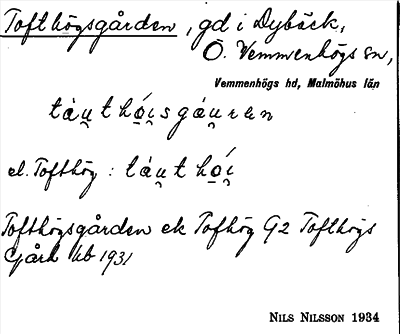 Tofthögsgården, gd i Dybäck,
Ö. Vemmenhögs sn,
Vemmenhögs hd, Malmöhus län
tȧu̯t hó̤i̯sgáu̯ren
el. Tofthög: táu̯t hó̤i̯
Tofthögsgården ek Tofhög G2 Tofthögs
Gård kb 1931
NILS NILSSON 1934